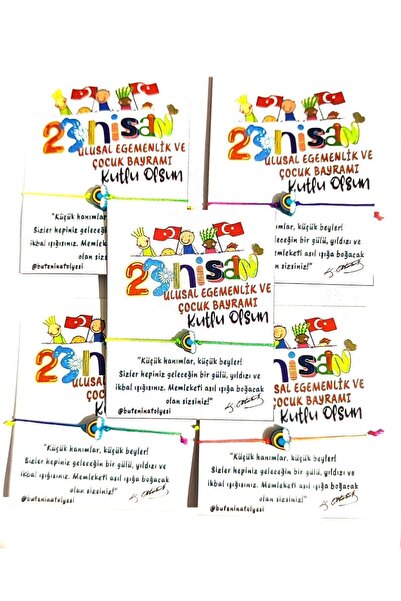 23 nisan
ULUSAL EGEMENLİK VE
ÇOCUK BAYRAMI
Kutlu Olsun
"Küçük hanımlar, küçük beyler!
Sizler hepiniz geleceğin bir gülü, yıldızı ve
ikbal ışığısınız. Memleketi asıl ışığa boğacak
olan sizsiniz!"
@buteninatolyesi
23 nisan
ULUSAL EGEMENLİK VE
ÇOCUK BAYRAMI
Kutlu Olsun
"Küçük hanımlar, küçük beyler!
geleceğin bir gülü, yıldızı ve
Memleketi asıl ışığa boğacak
olan sizsiniz!"
23 nisan
ULUSAL EGEMENLİK VE
ÇOCUK BAYRAMI
Kutlu Olsun
"Küçük hanımlar, küçük beyler!
Sizler hepiniz geleceğin bir gülü, yıldızı ve
ikbal ışığısınız. Memleketi asıl ışığa boğacak
olan sizsiniz!"
@buteninatolyesi
23
ULUSAL
ÇOCUK
"Küçük hanımlar, küçük beyler!
Sizler hepiniz geleceğin bir gülü, yıldızı ve
ikbal ışığısınız. Memleketi asıl ışığa boğacak
olan sizsiniz!"
@buteninatolyesi
nisan
EGEMENLİK VE
BAYRAMI
Kutlu Olsun
"Küçük hanımlar, küçük beyler!
Sizler hepiniz geleceğin bir gülü, yıldızı ve
ikbal ışığısınız. Memleketi asıl ışığa boğacak
olan sizsiniz!"
@buteninatolyesi